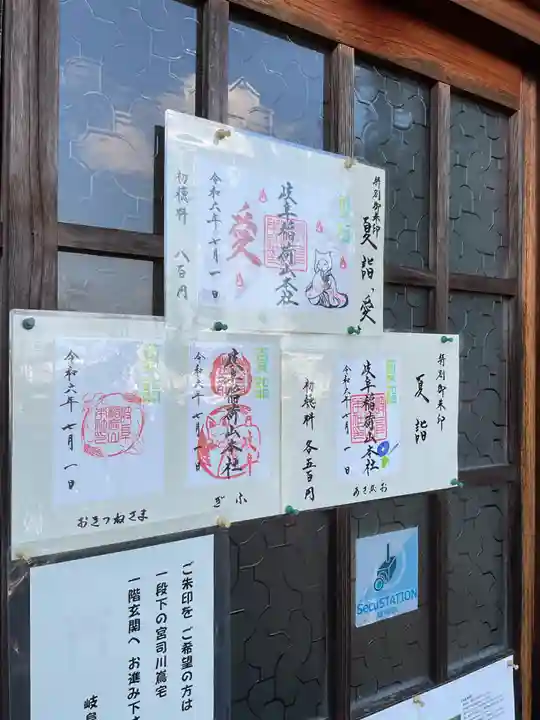 特別御朱印
夏詣、愛
夏詣
岐阜稲荷山本社
愛
令和六年七月一日
初穂料 八百円
特別御朱印
夏詣
夏詣
岐阜稲荷山本社
令和六年七月一日
初穂料 各五百円
夏詣
岐阜稲荷山本社
令和六年七月一日
ぎふ
夏詣
令和六年七月一日
おきつねさま
SecuSTATION
ご朱印を ご希望の方は
一段下の宮司川嶌宅
一階玄関へ お進み下さ
岐阜